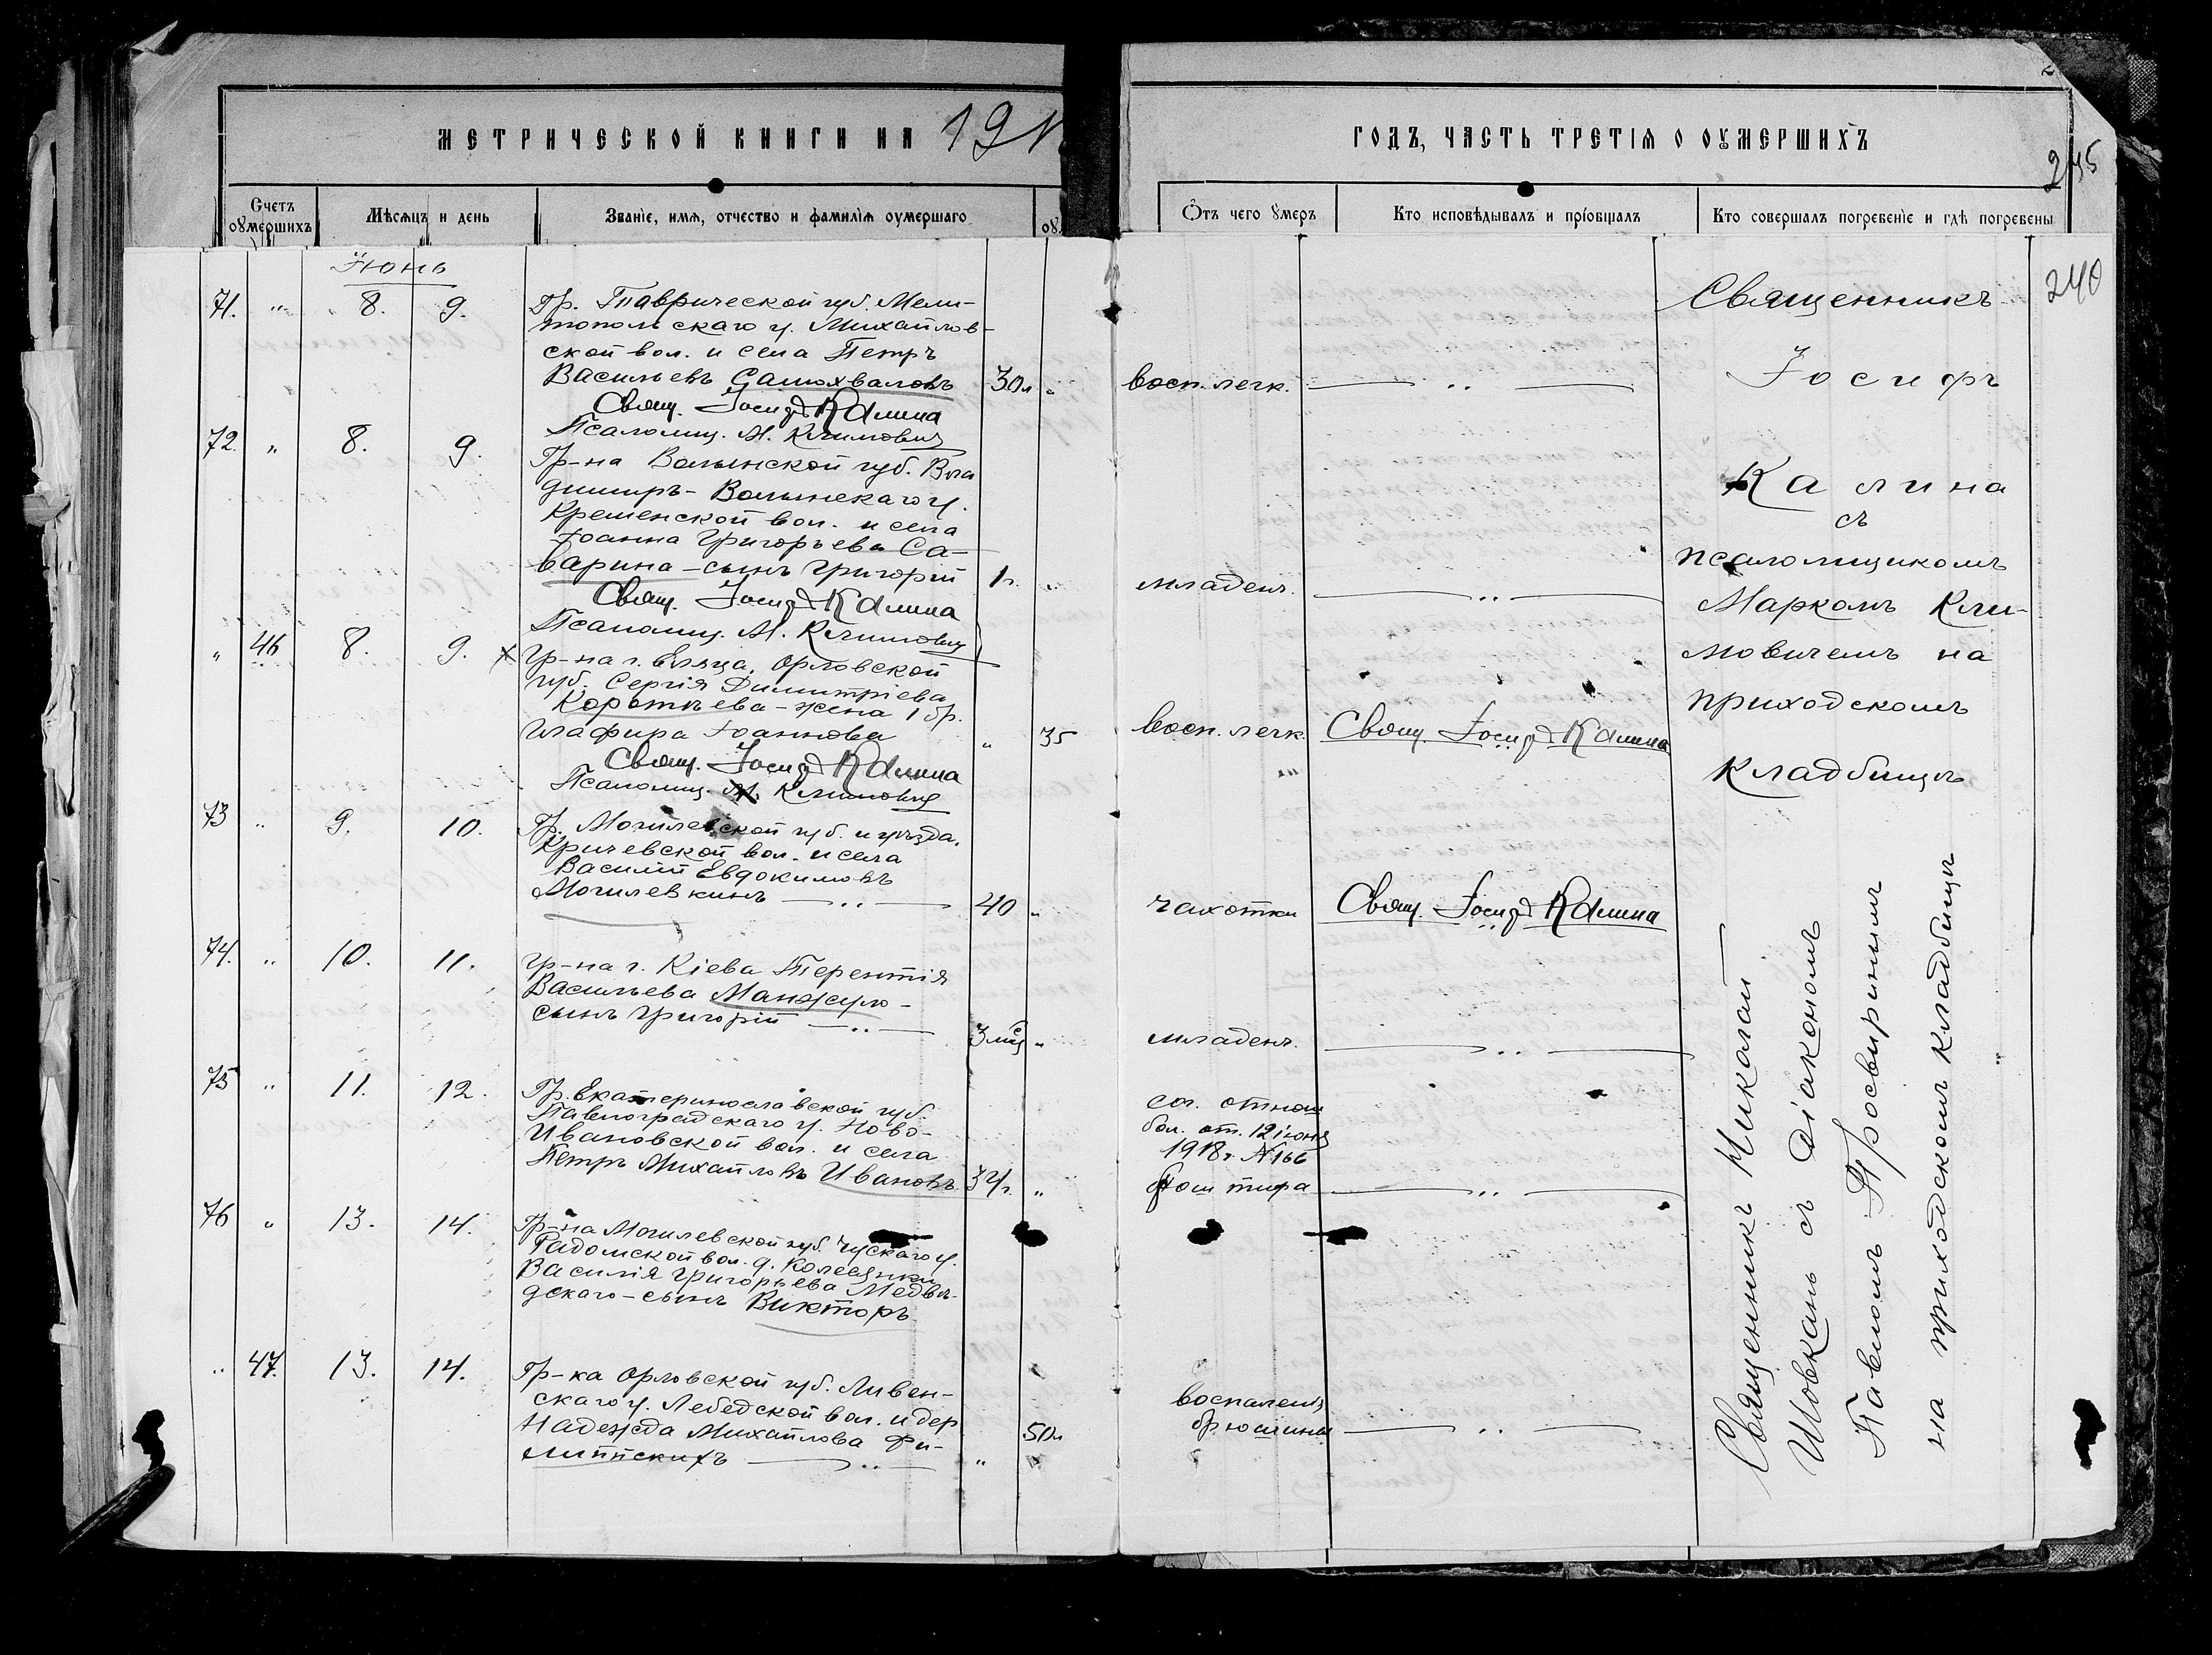 МЕТРИЧЕСКОЙ КНИГИ НА 191
Счетъ оумершихъ
Мѣсяцъ и день
Званіе, имя, отчество и фамилія оумершаго
Іюнь
71. " 8. 9.
Гр. Таврической губ. Мели-
топольскаго у. Михайлов-
ской вол. и села Петръ
Васильевъ Самохваловъ 30 л "
Свящ. Іосифъ Калина
Псаломщ. М. Климович
72. " 8. 9.
Гр-на Волынской губ. Вла
димиръ-Волынскаго у.
Кременской вол. и села
Іоанна Григорьева Са-
варина - сынъ Григорій 1 г. "
Свящ. Іосифъ Калина
Псаломщ. М. Климович
" 46 8. 9.
Гр-на г. Ельца, Орловской
губ. Сергія Димитріева
Коротѣева - жена 1 бр.
Глафира Іоаннова " 35
Свящ. Іосифъ Калина
Псаломщ. М. Климович
73 " 9. 10.
Гр. Могилевской губ. и уѣзда.
Кричевской вол. и села
Василій Евдокимовъ
Могилевкинъ 40 "
74. " 10. 11.
Гр-на г. Кіева Терентія
Васильева Манжуло -
сынъ Григорій 3 мѣс "
75 " 11. 12.
Гр. Екатеринославской губ.
Павлоградскаго у. Ново-
Ивановской вол. и села
Петръ Михайловъ Ивановъ 34 г. "
76 " 13. 14.
Гр-на Могилевской губ. Чускаго у.
Радомской вол. д.
Василія Григорьева Медвѣ-
дскаго - сынъ Викторъ
" 47. 13. 14.
Гр-ка Орловской губ. Ливен-
скаго у. Лебедской вол. и дер
Надежда Михайлова Фи-
липпскихъ " 50 л
ГОДЪ, ЧАСТЬ ТРЕТІЯ О ОУМЕРШИХЪ
245
Отъ чего умеръ
Кто исповѣдывалъ и пріобщалъ
Кто совершалъ погребеніе и гдѣ погребены
240
восп. легк.
младенч.
восп. легк. Свящ. Іосифъ Калина
чахотки Свящ. Іосифъ Калина
младенч.
сог. отнош
бол. от. 12 іюня
1918 г. № 166
брюш тифа
воспаленія
брюшины
Священникъ
Іосифъ
Калина
съ
псаломщикомъ
Маркомъ Кли-
мовичемъ на
приходскомъ
кладбищѣ
Священникъ Николай
Шовкань съ діакономъ
Павломъ Просвирнинымъ
на приходскомъ кладбищѣ